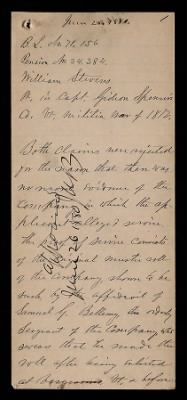 June 26, 1880. 1
B. L. No 71,156
Pension No 24,284.
William Stevens
P. in Capt. Gideon Spencer
Co. Vt. Militia War of 1812.
Both Claims were rejected
for the reason that there was
no record evidence of the
Company in which the ap-
plicant alleged service.
The proof of service consists
of the original muster roll
of the Company, shown to be
such by the affidavit of
Samuel G. Bellamy the orderly
Sergeant of the Company, who
swears that he made the
roll after being enlisted
at Vt, a before
June 26, 1880